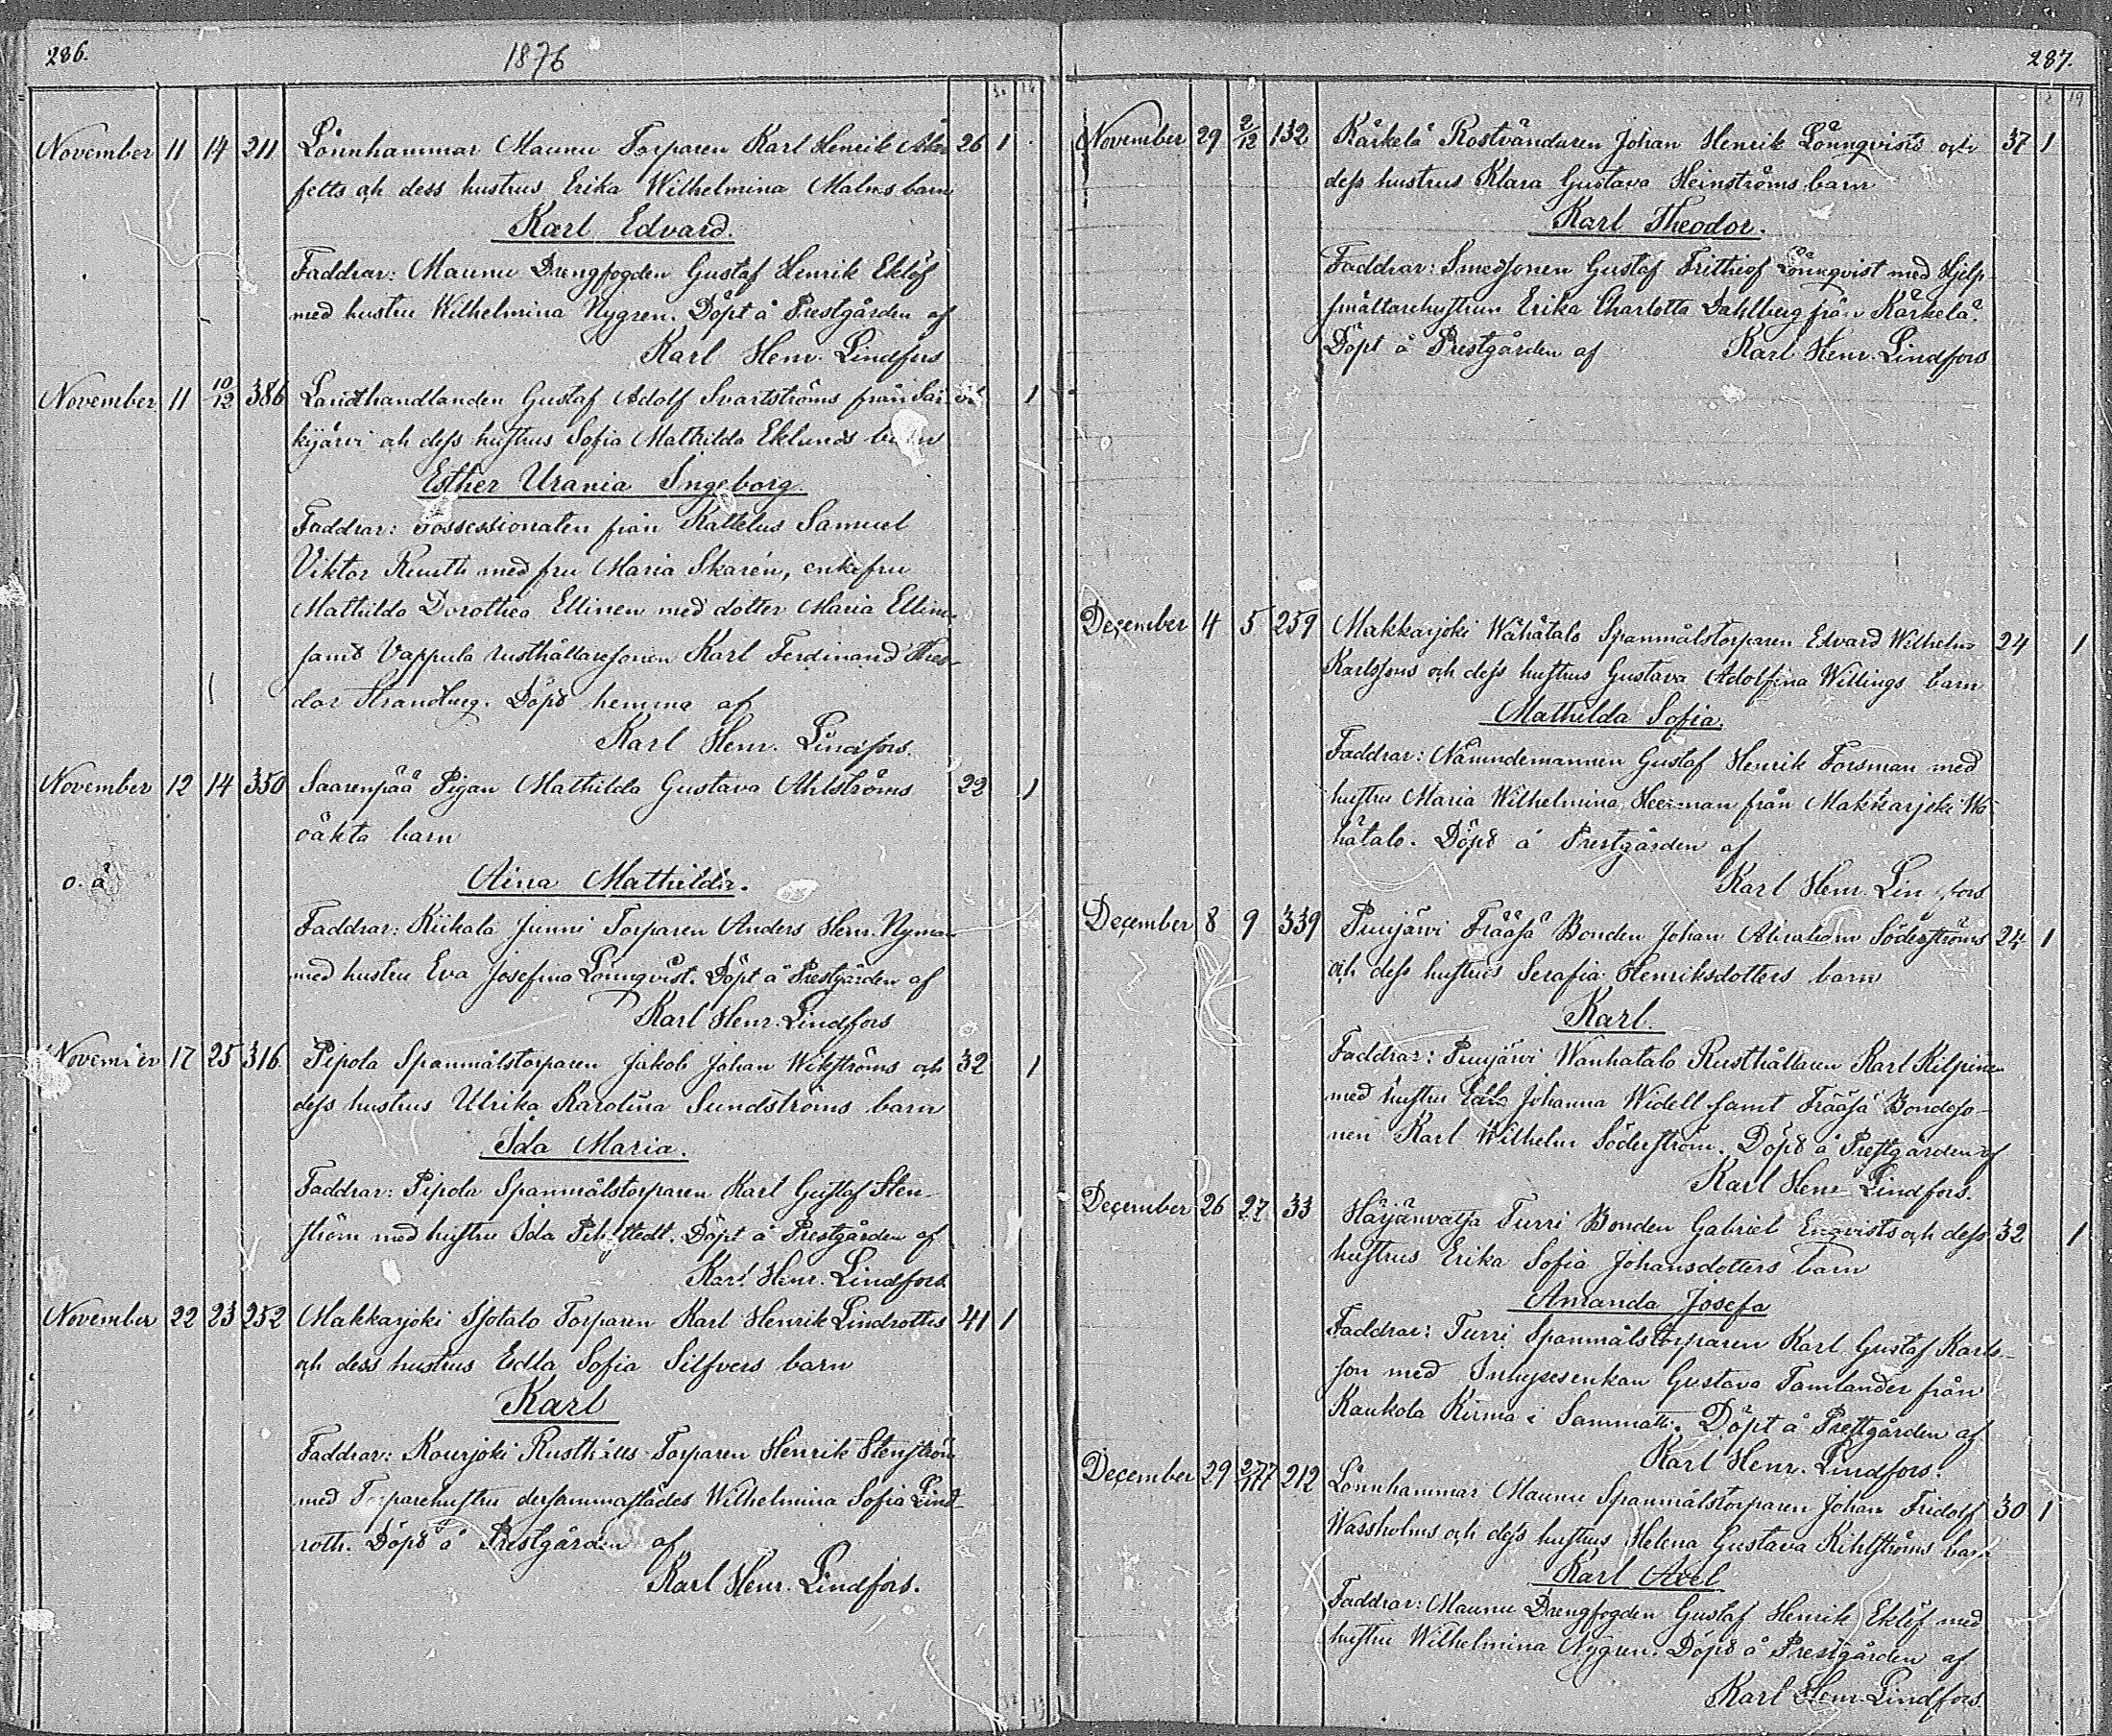 286.
1876
November 11 14 211 Lönnhammar Maunu Torparen Karl Henrik Åker 26 1
felts och dess hustrus Erika Wilhelmina Malms barn
Karl Edvard.
Faddrar: Maunu Drengfogden Gustaf Henrik Eklöf
med hustru Wilhelmina Nygren. Döpt å Prestgården af
Karl Henr. Lindfors
November 11 10/12 386 Landthandlanden Gustaf Adolf Svartströms från Sär 1
kijärvi och dess hustrus Sofia Mathilda Eklunds barn
Esther Urania Ingeborg.
Faddrar: Possessionaten från Kattelus Samuel
Viktor Ruuth med fru Maria Skarén, enkefru
Mathilda Dorothea Ellinen med dotter Maria Ellin
samt Vappula rusthållaresonen Karl Ferdinand Theo
dor Strandberg. Döpt hemma af
Karl Henr. Lindfors.
November 12 14 350 Saarenpää Pigan Mathilda Gustava Ahlströms 22 1
oäkta barn
o. ä
Aina Mathilda.
Faddrar: Kiikala Junni Torparen Anders Henr. Nyman
med hustru Eva Josefina Lönnqvist. Döpt å Prestgården af
Karl Henr. Lindfors
November 17 25 316. Pipola Spanmålstorparen Jakob Johan Wikströms och 32 1
dess hustrus Ulrika Karolina Sundströms barn
Ida Maria.
Faddrar: Pipola Spanmålstorparen Karl Gustaf Sten-
ström med hustru Ida . Döpt å Prestgården af
Karl Henr. Lindfors.
November 22 23 252 Makkarjoki Isotalo Torparen Karl Henrik Lindroths 41 1
och dess hustrus Edla Sofia Silfvers barn
Karl
Faddrar: Kourjoki Rusthålls Torparen Henrik Stenström
med Torparehustru dersammastädes Wilhelmina Sofia Lind-
roth. Döpt å Prestgården af
Karl Henr. Lindfors.
287.
November 29 2/12 132 Kärkelä Rostvändaren Johan Henrik Lönnqvists och 37 1
dess hustrus Klara Gustava Heinströms barn
Karl Theodor.
Faddrar: Smedsonen Gustaf Frithiof Lönnqvist med Hjelp-
smältarehustrun Erika Charlotta Dahlberg från Kärkelä.
Döpt å Prestgården af Karl Henr. Lindfors
December 4 5 259 Makkarjoki Wähätalo Spanmålstorparen Edvard Wilhelm 24 1
Karlssons och dess hustrus Gustava Adolfina Willings barn
Mathilda Sofia.
Faddrar: Nämndemannen Gustaf Henrik Forsman med
hustru Maria Wilhelmina Heerman från Makkarjoki Wä-
hätalo. Döpt å Prestgården af
Karl Henr. Lindfors
December 8 9 339 Puujärvi Frääsä Bonden Johan Abraham Söderströms 24 1
och dess hustrus Serafia Henriksdotters barn
Karl.
Faddrar: Puujärvi Wanhatalo Rusthållaren Karl Kilpinen
med hustru Edla Johanna Widell samt Frääsä Bondeso-
nen Karl Wilhelm Söderström. Döpt å Prestgården af
Karl Henr Lindfors.
December 26 27 33 Härjänvatsa Turri Bonden Gabriel Enqvists och dess 32 1
hustrus Erika Sofia Johansdotters barn
Amanda Josefa
Faddrar: Turri Spanmålstorparen Karl Gustaf Karls-
son med Inhysesenkan Gustava Tamlander från
Kaukola Kirma i Sammatti. Döpt å Prestgården af
Karl Henr. Lindfors.
December 29 2/1 77 212 Lönnhammar Maunu Spanmålstorparen Johan Fridolf 30 1
Wassholms och dess hustrus Helena Gustava Kihlströms barn
Karl Axel
Faddrar: Maunu Drengfogden Gustaf Henrik Eklöf med
hustru Wilhelmina Nygren. Döpt å Prestgården af
Karl Henr. Lindfors